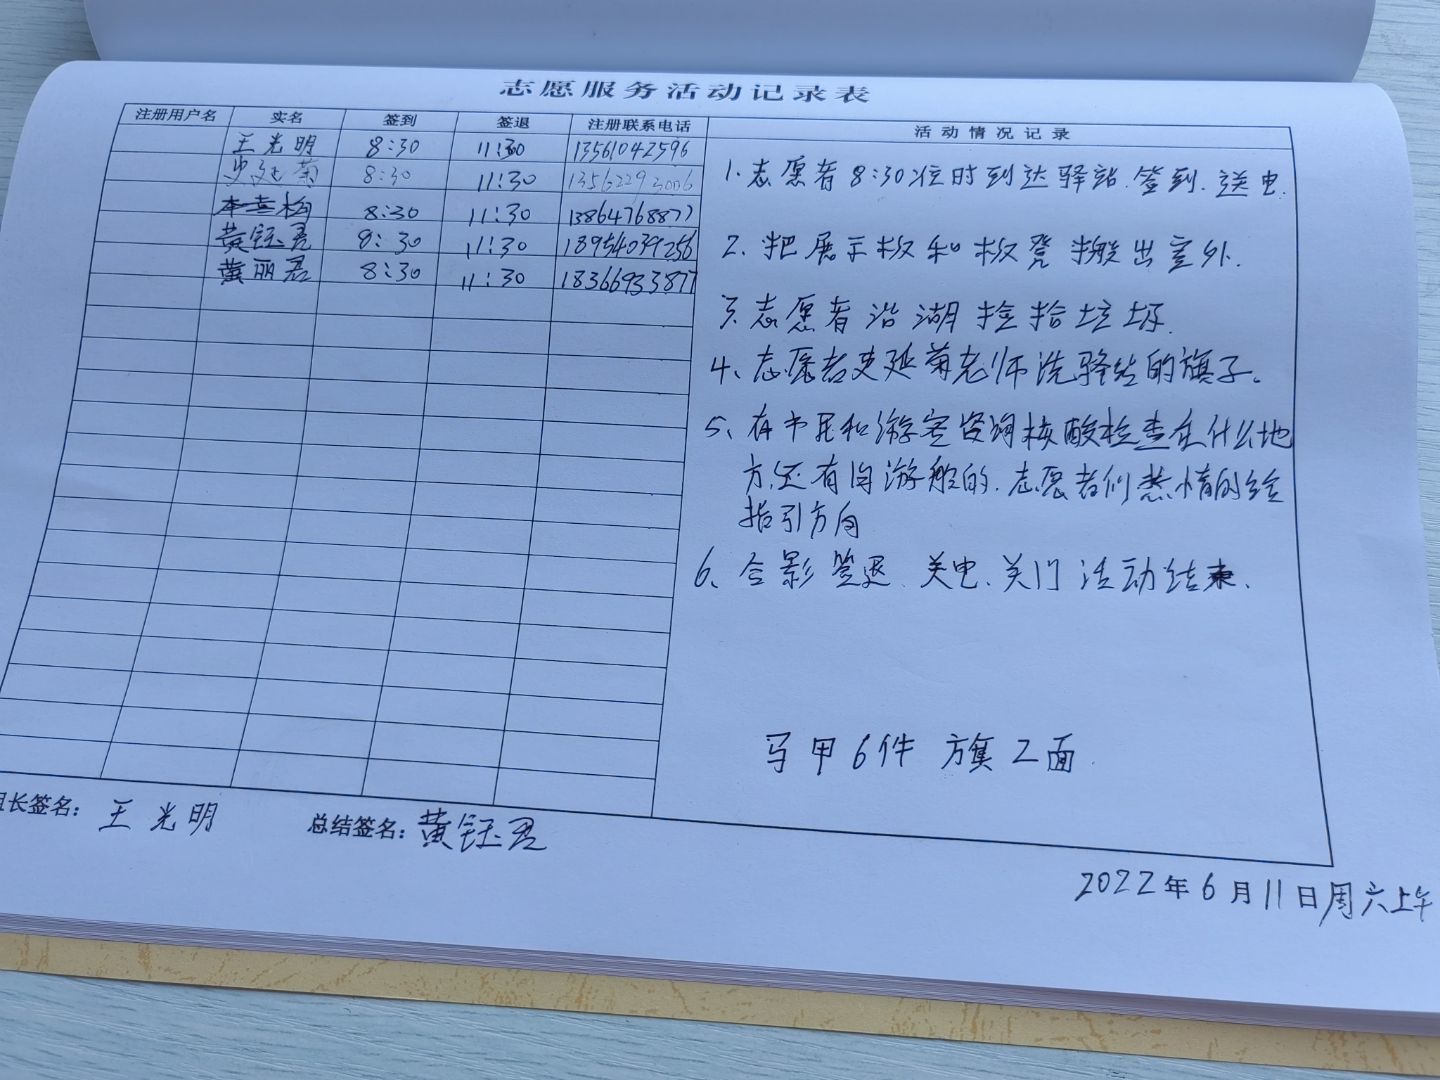 志愿服务活动记录表
注册用户名 实名 签到 签退 注册联系电话 活动情况记录
王光明 8:30 11:30 13561042596
史延菊 8:30 11:30
8:30 11:30 13864768877
黄钰君 8:30 11:30 18954039256
黄丽君 8:30 11:30 18366933877
1.志愿者8:30准时到达驿站.签到.送电.
2.把展示板和板凳搬出室外.
3.志愿者沿湖捡拾垃圾.
4、志愿者史延菊老师洗驿站的旗子。
5、有市民和游客咨询核酸检查在什么地
方,还有问游船的.志愿者们热情的给
指引方向
6、合影签退.关电、关门活动结束.
马甲6件 旗2面.
组长签名: 王光明 总结签名: 黄钰君
2022年6月11日周六上午